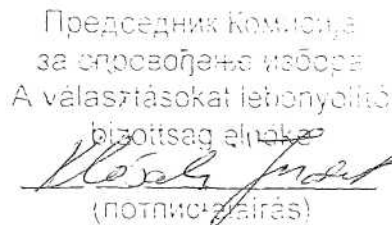 Председник Комисије
за спровођење избора
A választásokat lebonyolító
bizottság elnöke
(потпис-aláírás)